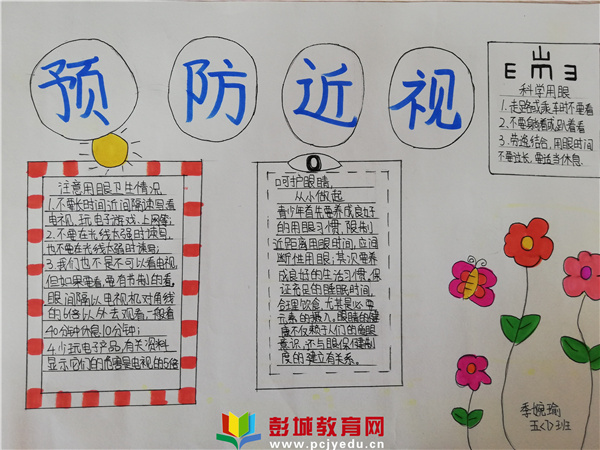 预防近视
E 山 m 3
科学用眼
1.走路或乘车时不要看
2.不要躺着或趴着看
3.劳逸结合,用眼时间
不要过长,要适当休息.
注意用眼卫生情况
1.不要长时间近间隔读目看
电视,玩电子游戏,上网等;
2.不要在光线太弱时读目,
也不要在光线太强时读目;
3.我们也不是不可以看电视,
但如果要看,要有节制的看,
眼间隔以电视机对角线
的6倍以外去观看,一般看
40分钟休息10分钟;
4.少玩电子产品,有关资料
显示它们的危害是电视的5倍
呵护眼睛,
从小做起
青少年首先要养成良好
的用眼习惯,限制
近距离用眼时间,应间
断性用眼;其次要养
成良好的生活习惯,保
证充足的睡眠时间,
合理饮食,尤其是必要
元素的摄入。眼睛的健
康不仅赖于人们的爱眼
意识,还与眼保健制
度的建立有关系。
季婉瑜
五〈1〉班
彭城教育网
www.pcjyedu.cn